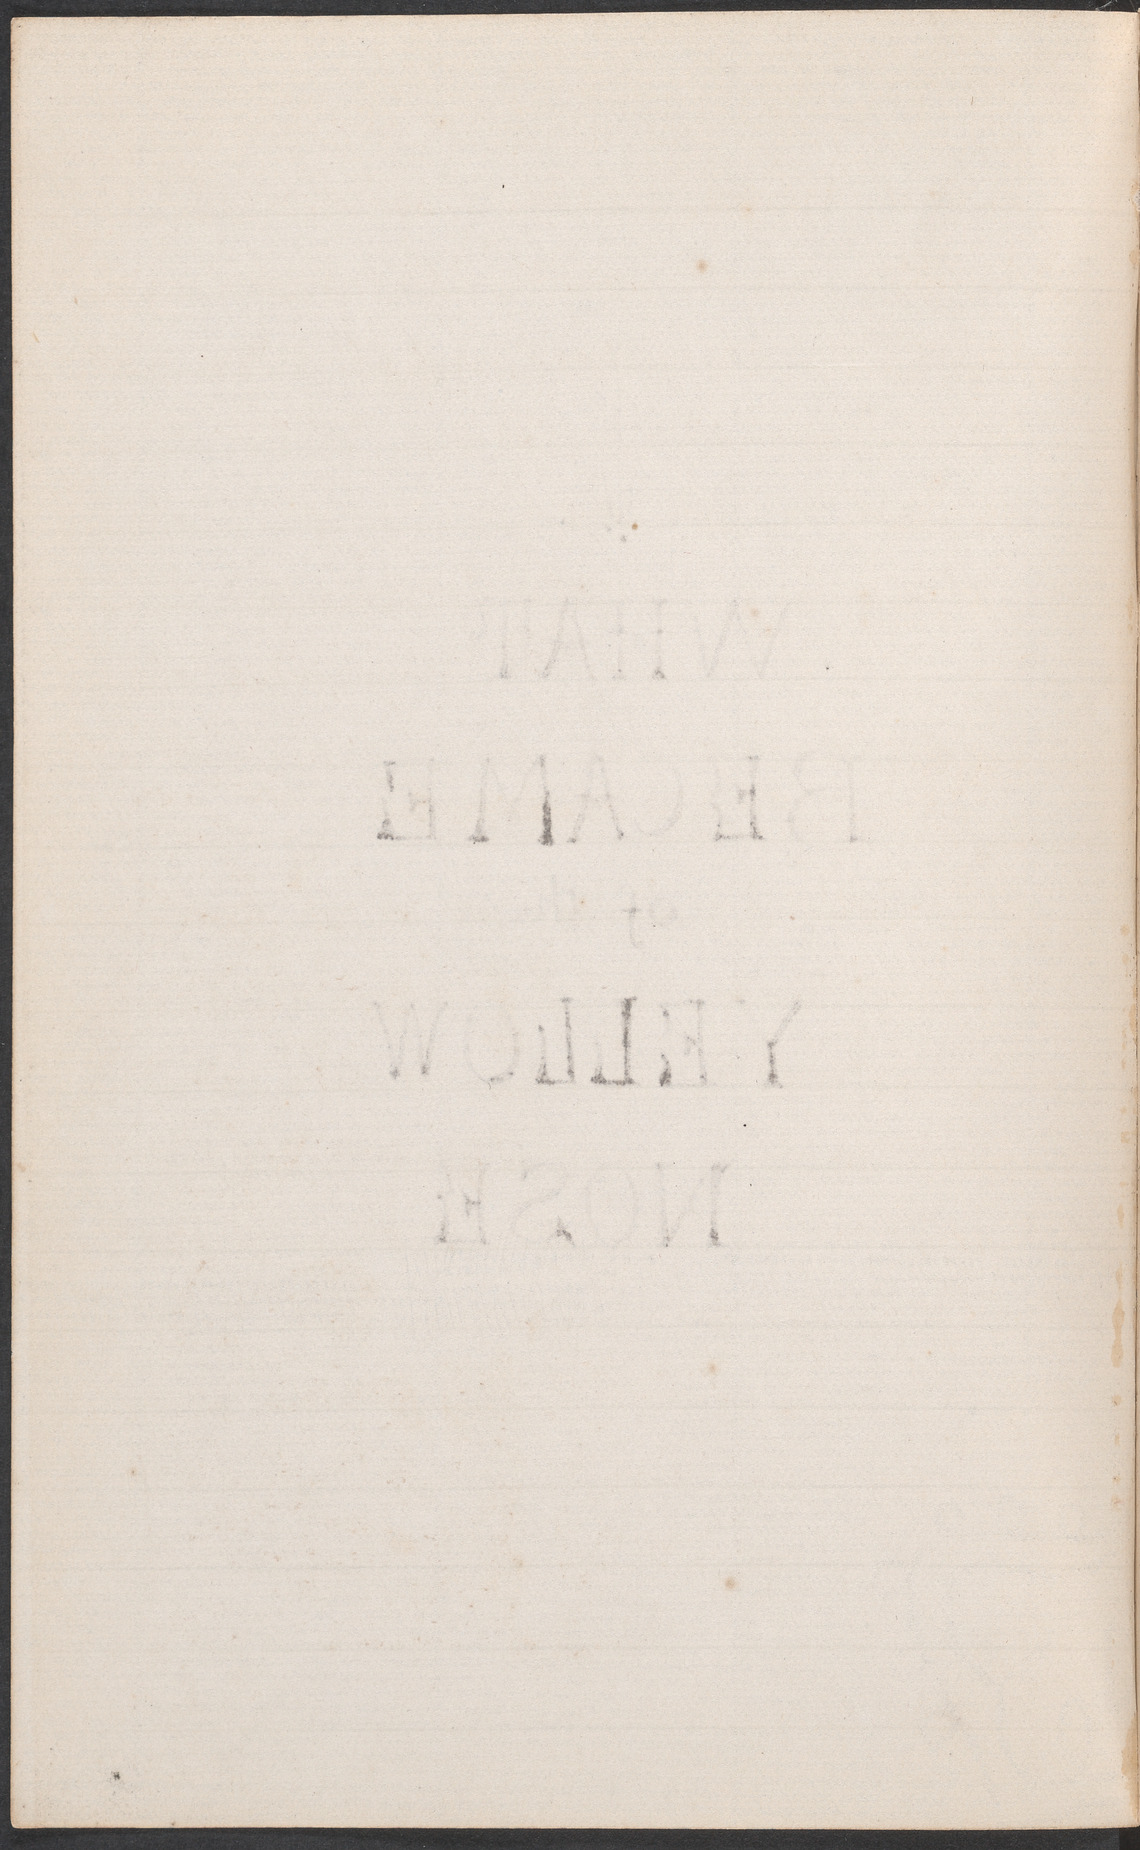 WHAT
BECAME
of the
YELLOW
NOSE